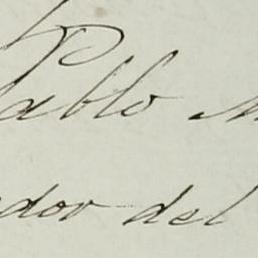 Pablo M
dor del